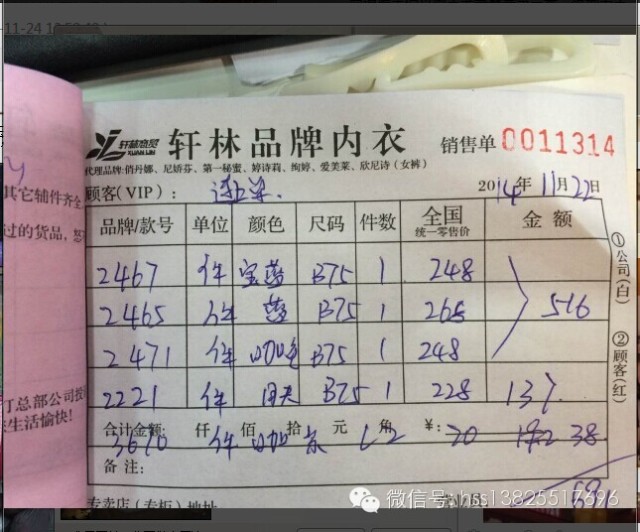 轩林品牌内衣 销售单 0011314
代理品牌:俏丹娜、尼娇芬、第一秘蜜、婷诗莉、绚婷、爱美莱、欣尼诗(女裤)
顾客(VIP): 2014年11月22日
品牌/款号 单位 颜色 尺码 件数 全国统一零售价 金额
2467 件 宝蓝 B75 1 248
2465 件 蓝 B75 1 268 516
2471 件 咖啡 B75 1 248
2221 件 B75 1 228 137
合计金额: 仟 佰 拾 元 角 ¥:
3670 件 咖 L2 20 192 38
备注:
专卖店(专柜)地址
①公司(白)
②顾客(红)
其它辅件齐全
过的货品,
总部公司授
生活愉快!
微信号: hss13825517696